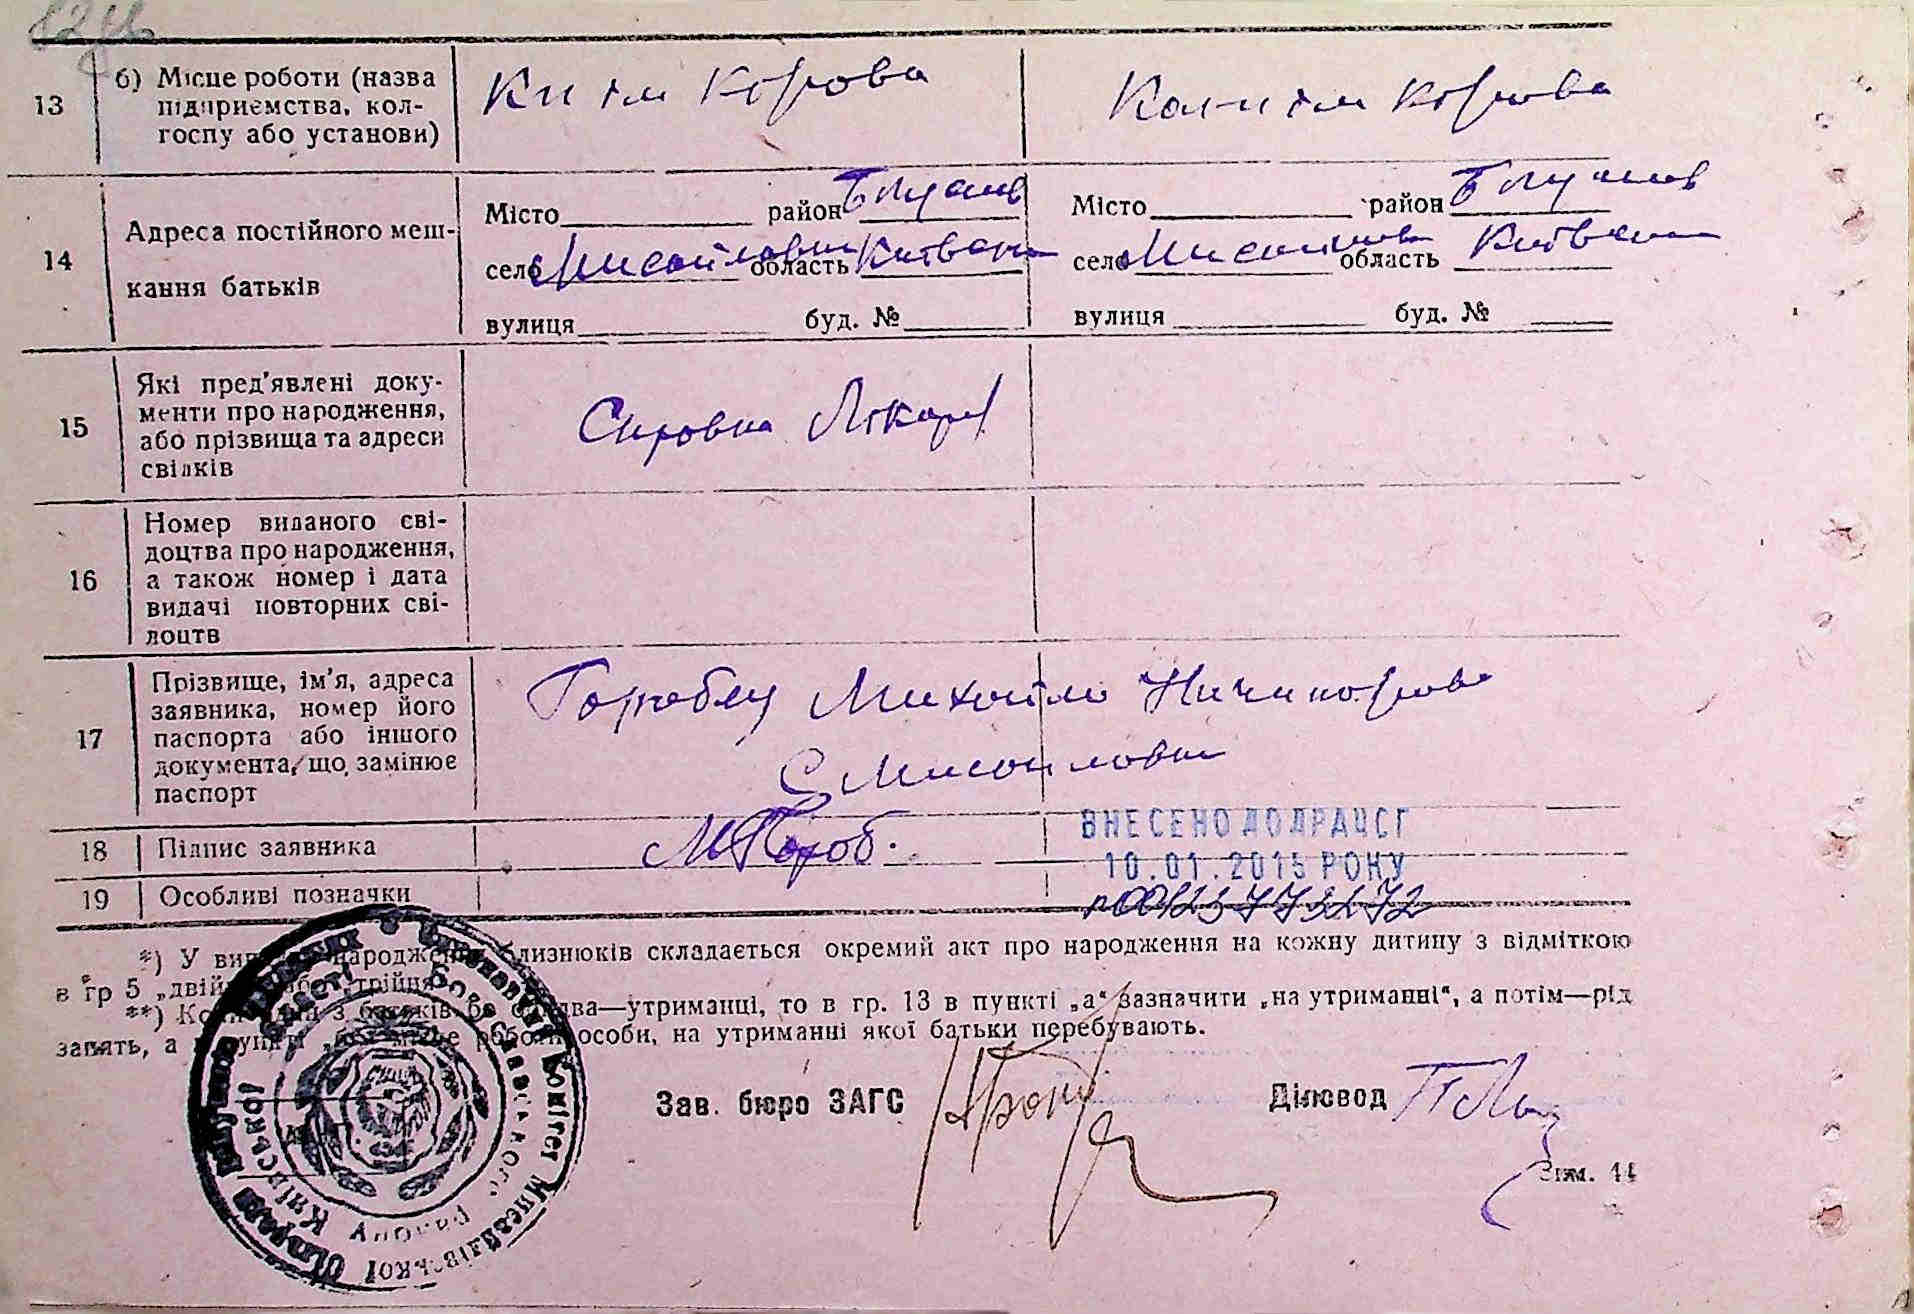 13
б) Місце роботи (назва
підприємства, кол-
госпу або установи)
К-п ім Кірова
Колг-п ім Кірова
14
Адреса постійного меш-
кання батьків
Місто район Богуслав
село Мисайлівка область Київська
вулиця буд. №
Місто район Богуслав
село Мисайлівка область Київська
вулиця буд. №
15
Які пред'явлені доку-
менти про народження,
або прізвища та адреси
свідків
Справка Лікаря
16
Номер виданого сві-
доцтва про народження,
а також номер і дата
видачі повторних сві-
доцтв
17
Прізвище, ім'я, адреса
заявника, номер його
паспорта або іншого
документа, що замінює
паспорт
Горобець Михайло Ничипорович
С Мисайлівка
18
Підпис заявника
М Гороб.
ВНЕСЕНО ДО ДРАЦСГ
10.01.2015 РОКУ
19
Особливі позначки
*) У випадку народження близнюків складається окремий акт про народження на кожну дитину з відміткою
в гр 5 „двійня" або „трійня"
**) Коли один з батьків бо обидва—утриманці, то в гр. 13 в пункті „а" зазначити „на утриманні", а потім—рід
занять, а в пункті „б" місце роботи особи, на утриманні якої батьки перебувають.
Зав. бюро ЗАГС
Діловод
Виконавчий Комітет Мисайлівської
Богуславського району Київської
Зам. 44